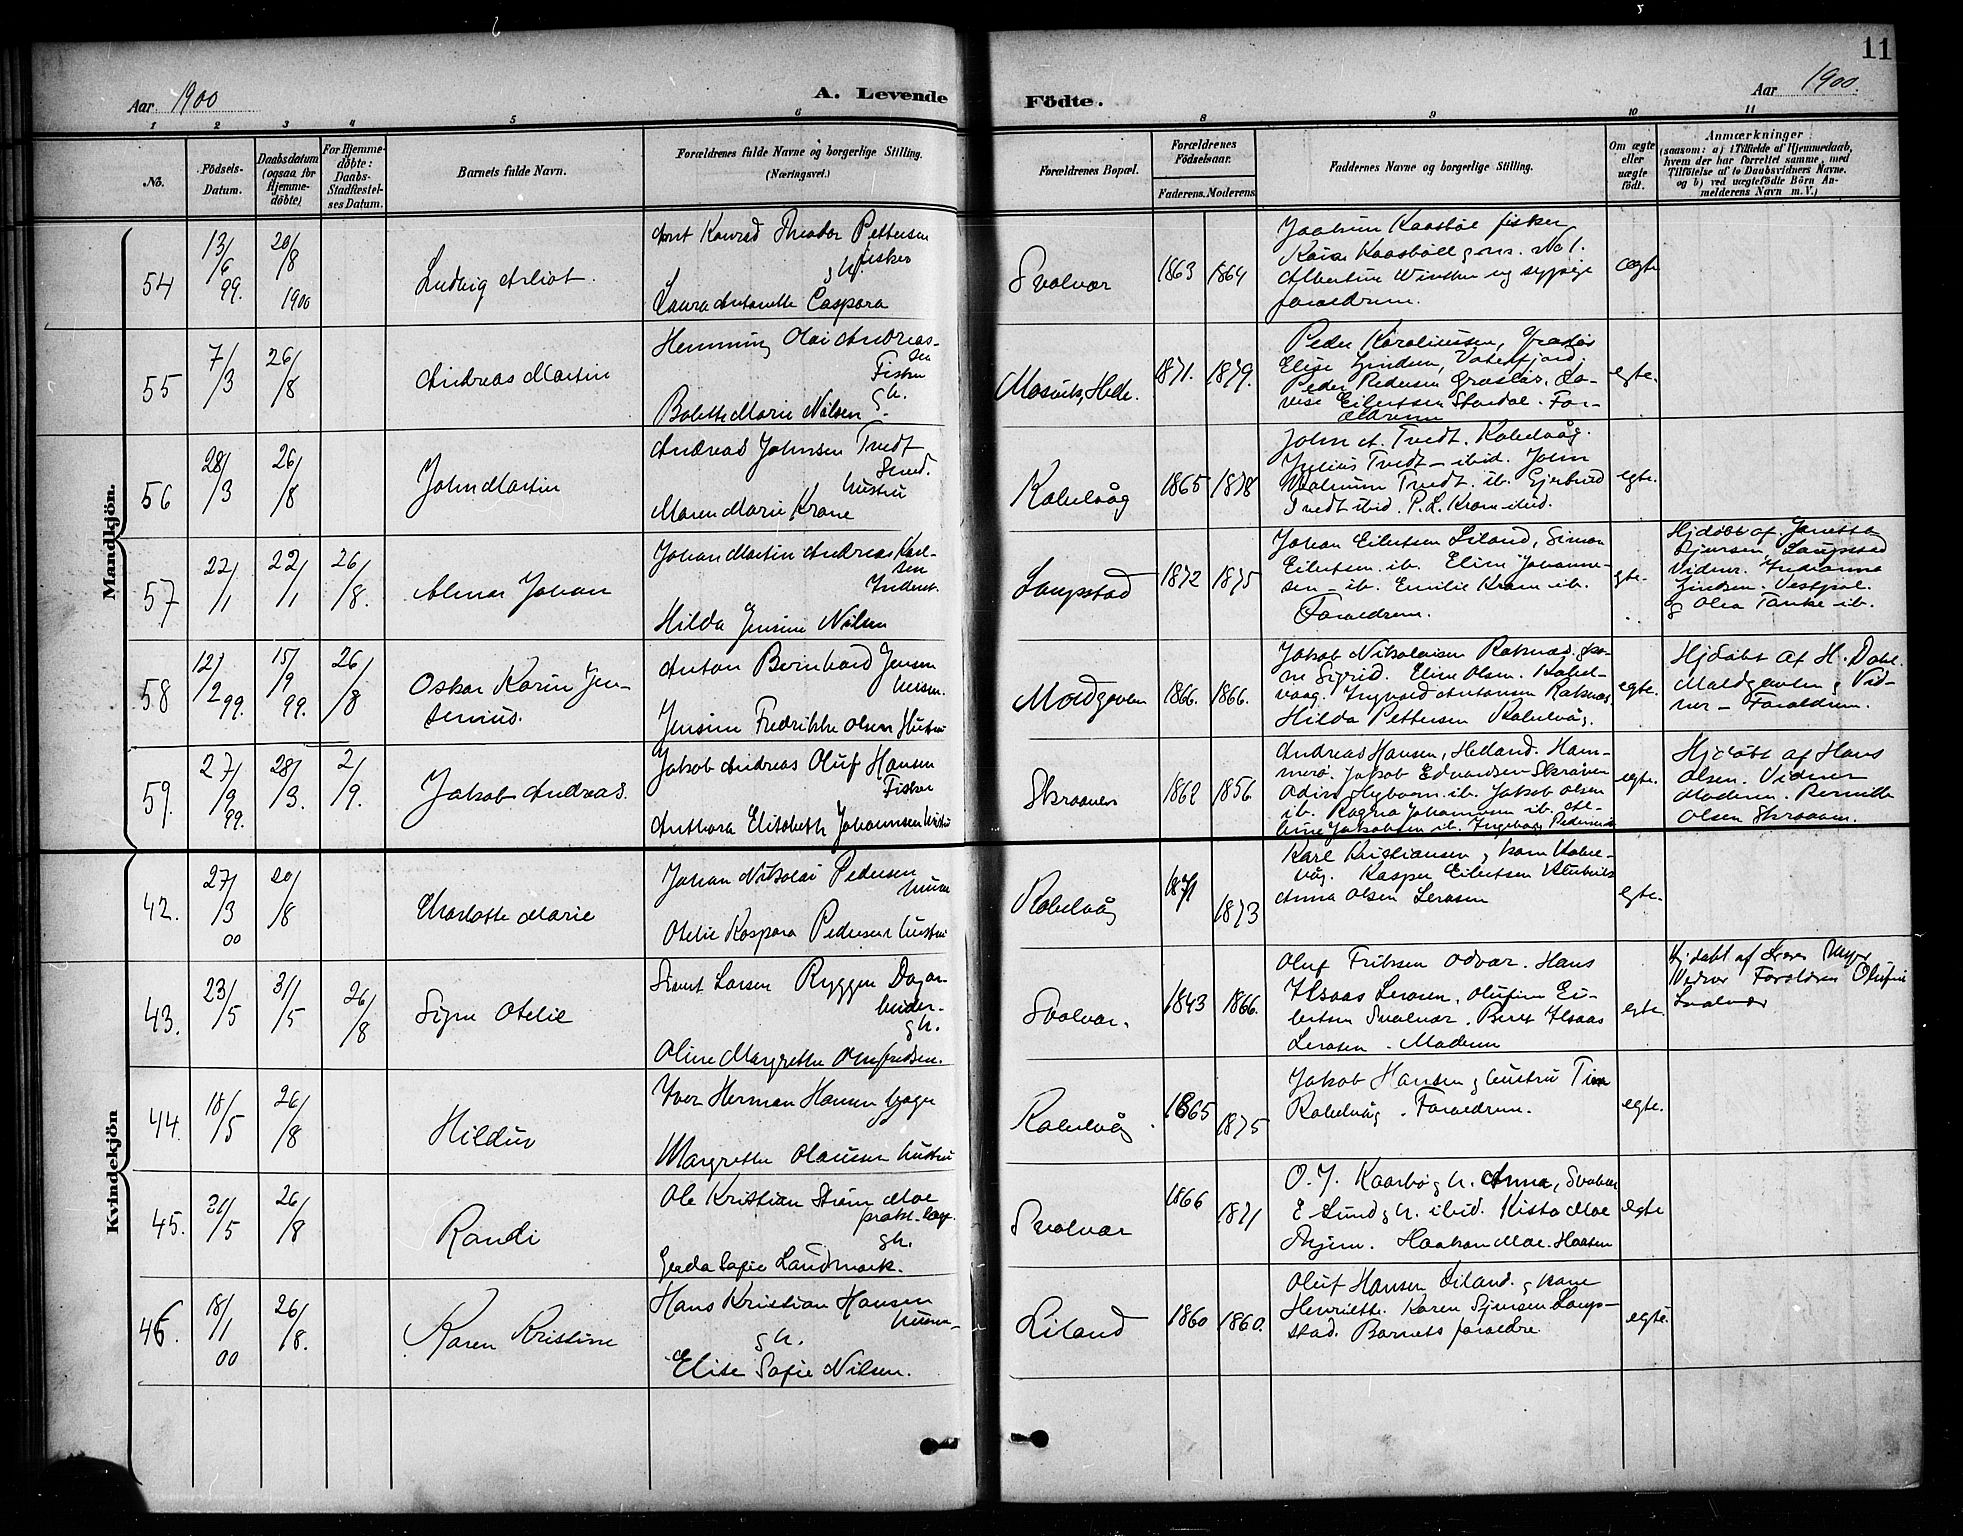 11
Aar 1900
A. Levende
Födte.
Aar 1900.
1 2 3 4 5 6 8 9 10 11
No.
Födsels-Datum.
Daabsdatum (ogsaa for Hjemmedöbte)
For Hjemmedöbte: Daabs-Stadfæstelses Datum.
Barnets fulde Navn.
Forældrenes fulde Navne og borgerlige Stilling.
(Næringsvei.)
Forældrenes Bopæl.
Forældrenes Födselsaar.
Faderens. Moderens.
Faddernes Navne og borgerlige Stilling.
Om ægte eller uægte födt.
Anmærkninger
(saasom: a) i Tilfælde af Hjemmedaab,
hvem der har forrettet samme, med
Tilföielse af to Daabsvidners Navne.
og b) ved uægtefödte Börn An-
melderens Navn m. V.)
Mandkjön.
54
13/6 99.
20/8 1900
Ludvig Arliot
Arnt Konrad Theodor Pettersen
fisker
g h.
Laura Antonette Caspara
Svolvær
1863
1864
Joakim Kaarbøe fisker
Albertine
forældrene.
ægte
55
7/3
26/8
Andreas Martin
Henning Olai Andreas-
sen
Fisker
g h.
Bolette Marie Nilsen
1871.
1879.
Peder Karoliussen,
Elise Vaterfjord
Peder Pedersen
Eilertsen For-
ældrene
egte.
56
28/3
26/8
John Martin
Andreas Johnsen Tvedt
Smed.
hustru
Maren Marie Krane
Kabelvåg
1865
1878
John A. Tvedt. Kabelvåg.
Julius Tvedt – ibid. John
Tvedt. ib.
Tvedt ibid. P. L. Krane ibid.
egte.
57
22/1
22/1
26/8.
Almar Johan
Johan Martin Andreas Karl-
sen
Inderst.
Hilda Jensine Nilsen
Laupstad
1872
1875
Johan Eilertsen Liland, Simon
Eilertsen ib. Eline Johanne-
sen – ib. Emilie Krane ib.
Forældrene.
egte.
Hjdøbt af
Laupstad
Vidner.
g Olea Tanke ib.
58
12/2 99.
15/9 99.
26/8
Oskar Karin Jen-
senius.
Anton Bernhard Jensen
Jensine Fredrikke Olsen Hustru
1866.
1866.
Jakob Nikolaisen Raknæs. ko-
ne Sigrid. Eline Olsen. Kabel-
vaag. Ingvald Antonsen Raknæs
Hilda Pettersen Kabelvåg.
egte.
Hjdøbt af H. Dahl.
Vid-
ner – Forældrene.
59.
27/9 99.
28/3.
2/9.
Jakob Andreas.
Jakob Andreas Oluf Hansen
Fisker
Anthora Elisabeth Johannsen hustru
Skraaven
1862
1856
Andreas Hansen, Helland. Ham-
merø. Jakob Edvardsen Skråven
Odin ib. Jakob Olsen
ib. Ragna Johannesen ib.
Jakobsen ib. Ingeborg Pedersen
egte.
Hjdøbt af Hans
Olsen. Vidner
Moderen. Pernille
Olsen Skraaven.
Kvindekjön
42.
27/3 00
20/8
Charlotte Marie
Johan Nikolai Pedersen
Otelie Kaspara Pedersen hustru
Kabelvåg
1871
1873
Karl Kristiansen g kone Kabel-
våg. Kasper Eilertsen
Anna Olsen Lerosen
egte.
43.
23/5
31/5
26/8
Signe Otelie
Sivert Larsen Ryggen Dagar-
beider.
g h.
Oline Margrethe
Svolvær.
1843
1866.
Oluf Eriksen Odvær. Hans
Isaas Lerosen, Olufine Ei-
lertsen Svolvær. Beret Isaas
Lerosen. Moderen
egte
Hjdøbt af Meyer
Vidner Forældre Olufine
Svolvær
44.
18/5
26/8
Hildur
Iver Herman Hansen bager
Margrethe Olaussen hustru
Kabelvåg.
1865
1875
Jakob Hansen g hustru Tina
Kabelvåg. Forældrene.
egte.
45.
31/5
26/8
Randi
Ole Kristian Strøm Moe
prakt. læge.
gh.
Gerda Sofie Landmark.
Svolvær
1866
1871
O. J. Kaarbø g h. Anna, Svolvær
E Lund g h. ibid. Kista Moe
Haakon Moe.
egte
46.
18/1 00
26/8.
Karen Kristine
Hans Kristian Hansen
g h.
Elise Sofie Nilsen.
Liland
1860
1860.
Oluf Hansen Liland. g kone
Henriette. Karen Sjursen Laup-
stad. Barnets forældre
egte.